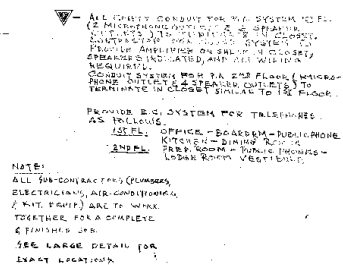 - ALL EMPTY CONDUIT FOR P.A. SYSTEM 1ST FL.
(2 MICROPHONE OUTLETS & 2 SPEAKER
OUTLETS) TO TERMINATE IN CLOSET,
CONTRACTOR FOR SOUND SYSTEM TO
PROVIDE AMPLIFIER ON SHELF IN CLOSET,
SPEAKERS INDICATED, AND ALL WIRING
REQUIRED.
CONDUIT SYSTEM FOR P.A. 2ND FLOOR (MICRO-
PHONE OUTLET & 4 SPEAKER OUTLETS) TO
TERMINATE IN CLOSET SIMILAR TO 1ST FLOOR.
PROVIDE E.C. SYSTEM FOR TELEPHONES
AS FOLLOWS.
1ST FL: OFFICE - BOARD RM - PUBLIC PHONE
KITCHEN - DINING ROOM
2ND FL: PREP. ROOM - PUBLIC PHONES -
LODGE ROOM VESTIBULE.
NOTE:
ALL SUB-CONTRACTORS (PLUMBERS,
ELECTRICIANS, AIR-CONDITIONING,
& KIT. EQUIP.) ARE TO WORK
TOGETHER FOR A COMPLETE
& FINISHED JOB.
SEE LARGE DETAIL FOR
EXACT LOCATIONS